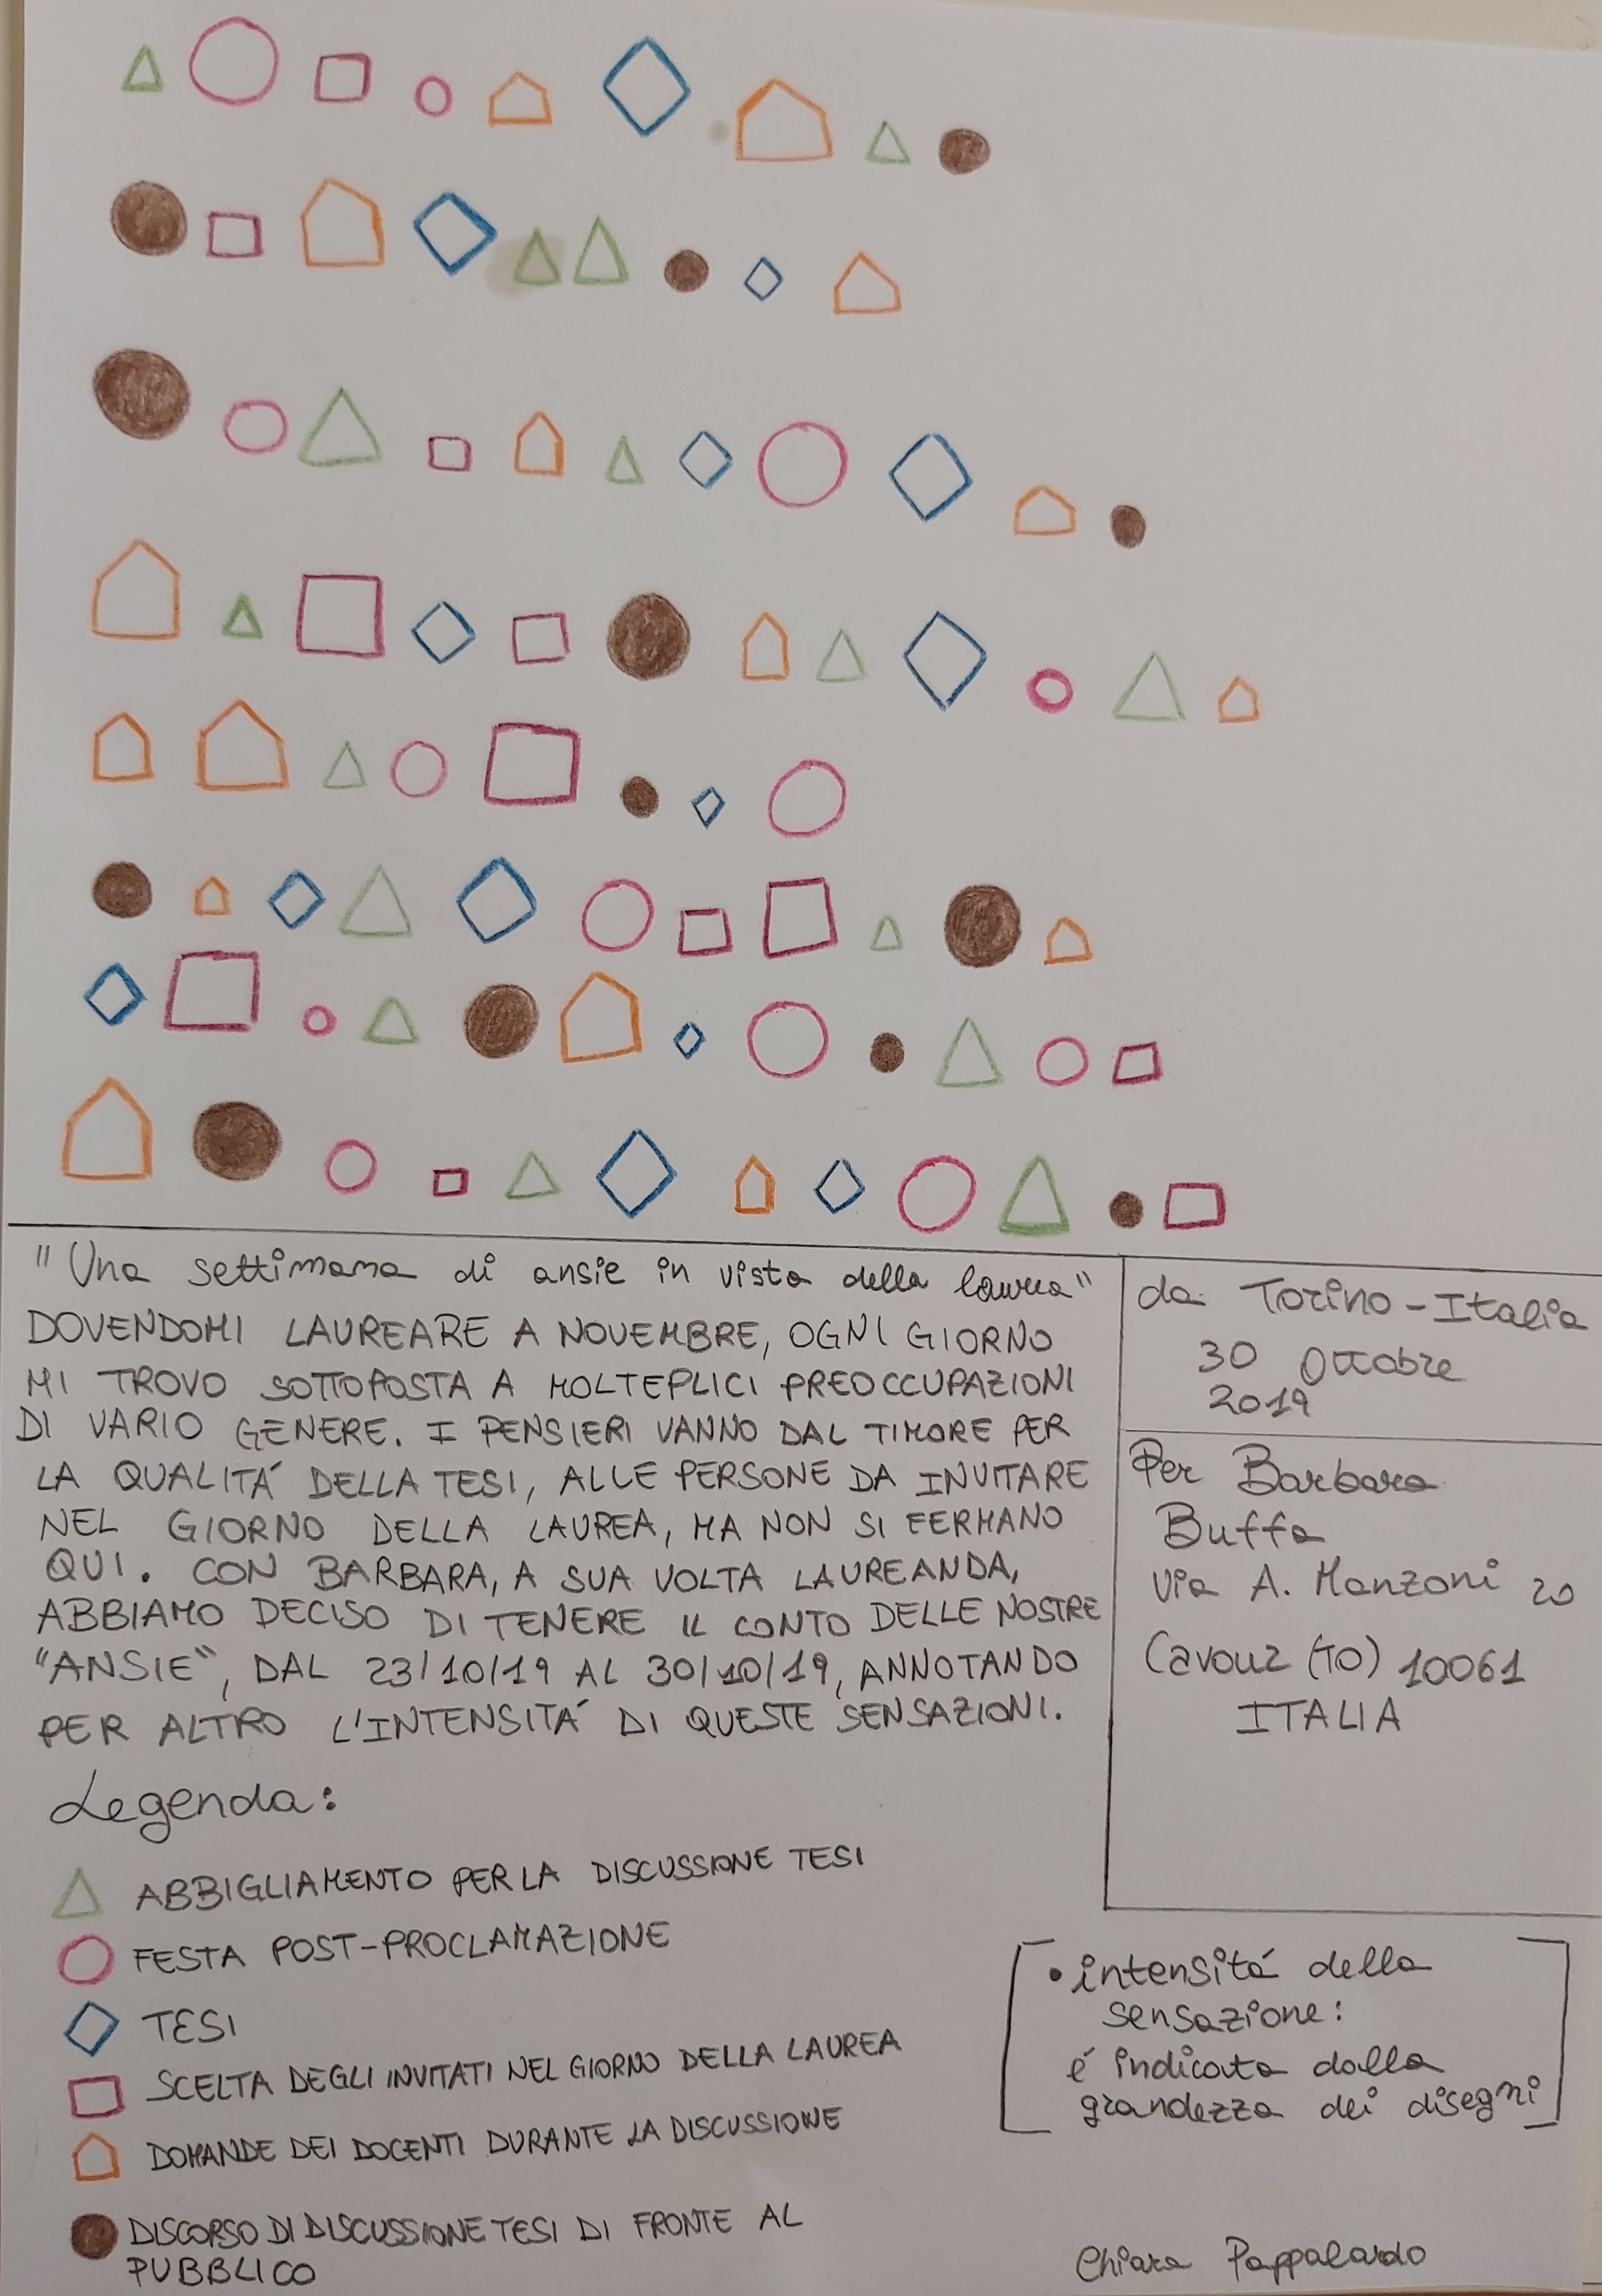 "Una settimana di ansie in vista della laurea"
DOVENDOMI LAUREARE A NOVEMBRE, OGNI GIORNO
MI TROVO SOTTOPOSTA A MOLTEPLICI PREOCCUPAZIONI
DI VARIO GENERE. I PENSIERI VANNO DAL TIMORE PER
LA QUALITÁ DELLA TESI, ALLE PERSONE DA INVITARE
NEL GIORNO DELLA LAUREA, MA NON SI FERMANO
QUI. CON BARBARA, A SUA VOLTA LAUREANDA,
ABBIAMO DECISO DI TENERE IL CONTO DELLE NOSTRE
"ANSIE", DAL 23/10/19 AL 30/10/19, ANNOTANDO
PER ALTRO L'INTENSITÁ DI QUESTE SENSAZIONI.
da Torino - Italia
30 Ottobre
2019
Per Barbara
Buffa
via A. Manzoni 20
Cavour (TO) 10061
ITALIA
Legenda:
ABBIGLIAMENTO PER LA DISCUSSIONE TESI
FESTA POST-PROCLAMAZIONE
TESI
SCELTA DEGLI INVITATI NEL GIORNO DELLA LAUREA
DOMANDE DEI DOCENTI DURANTE LA DISCUSSIONE
DISCORSO DI DISCUSSIONE TESI DI FRONTE AL
PUBBLICO
• intensitá della
sensazione:
é indicata dalla
grandezza dei disegni
Chiara Pappalardo